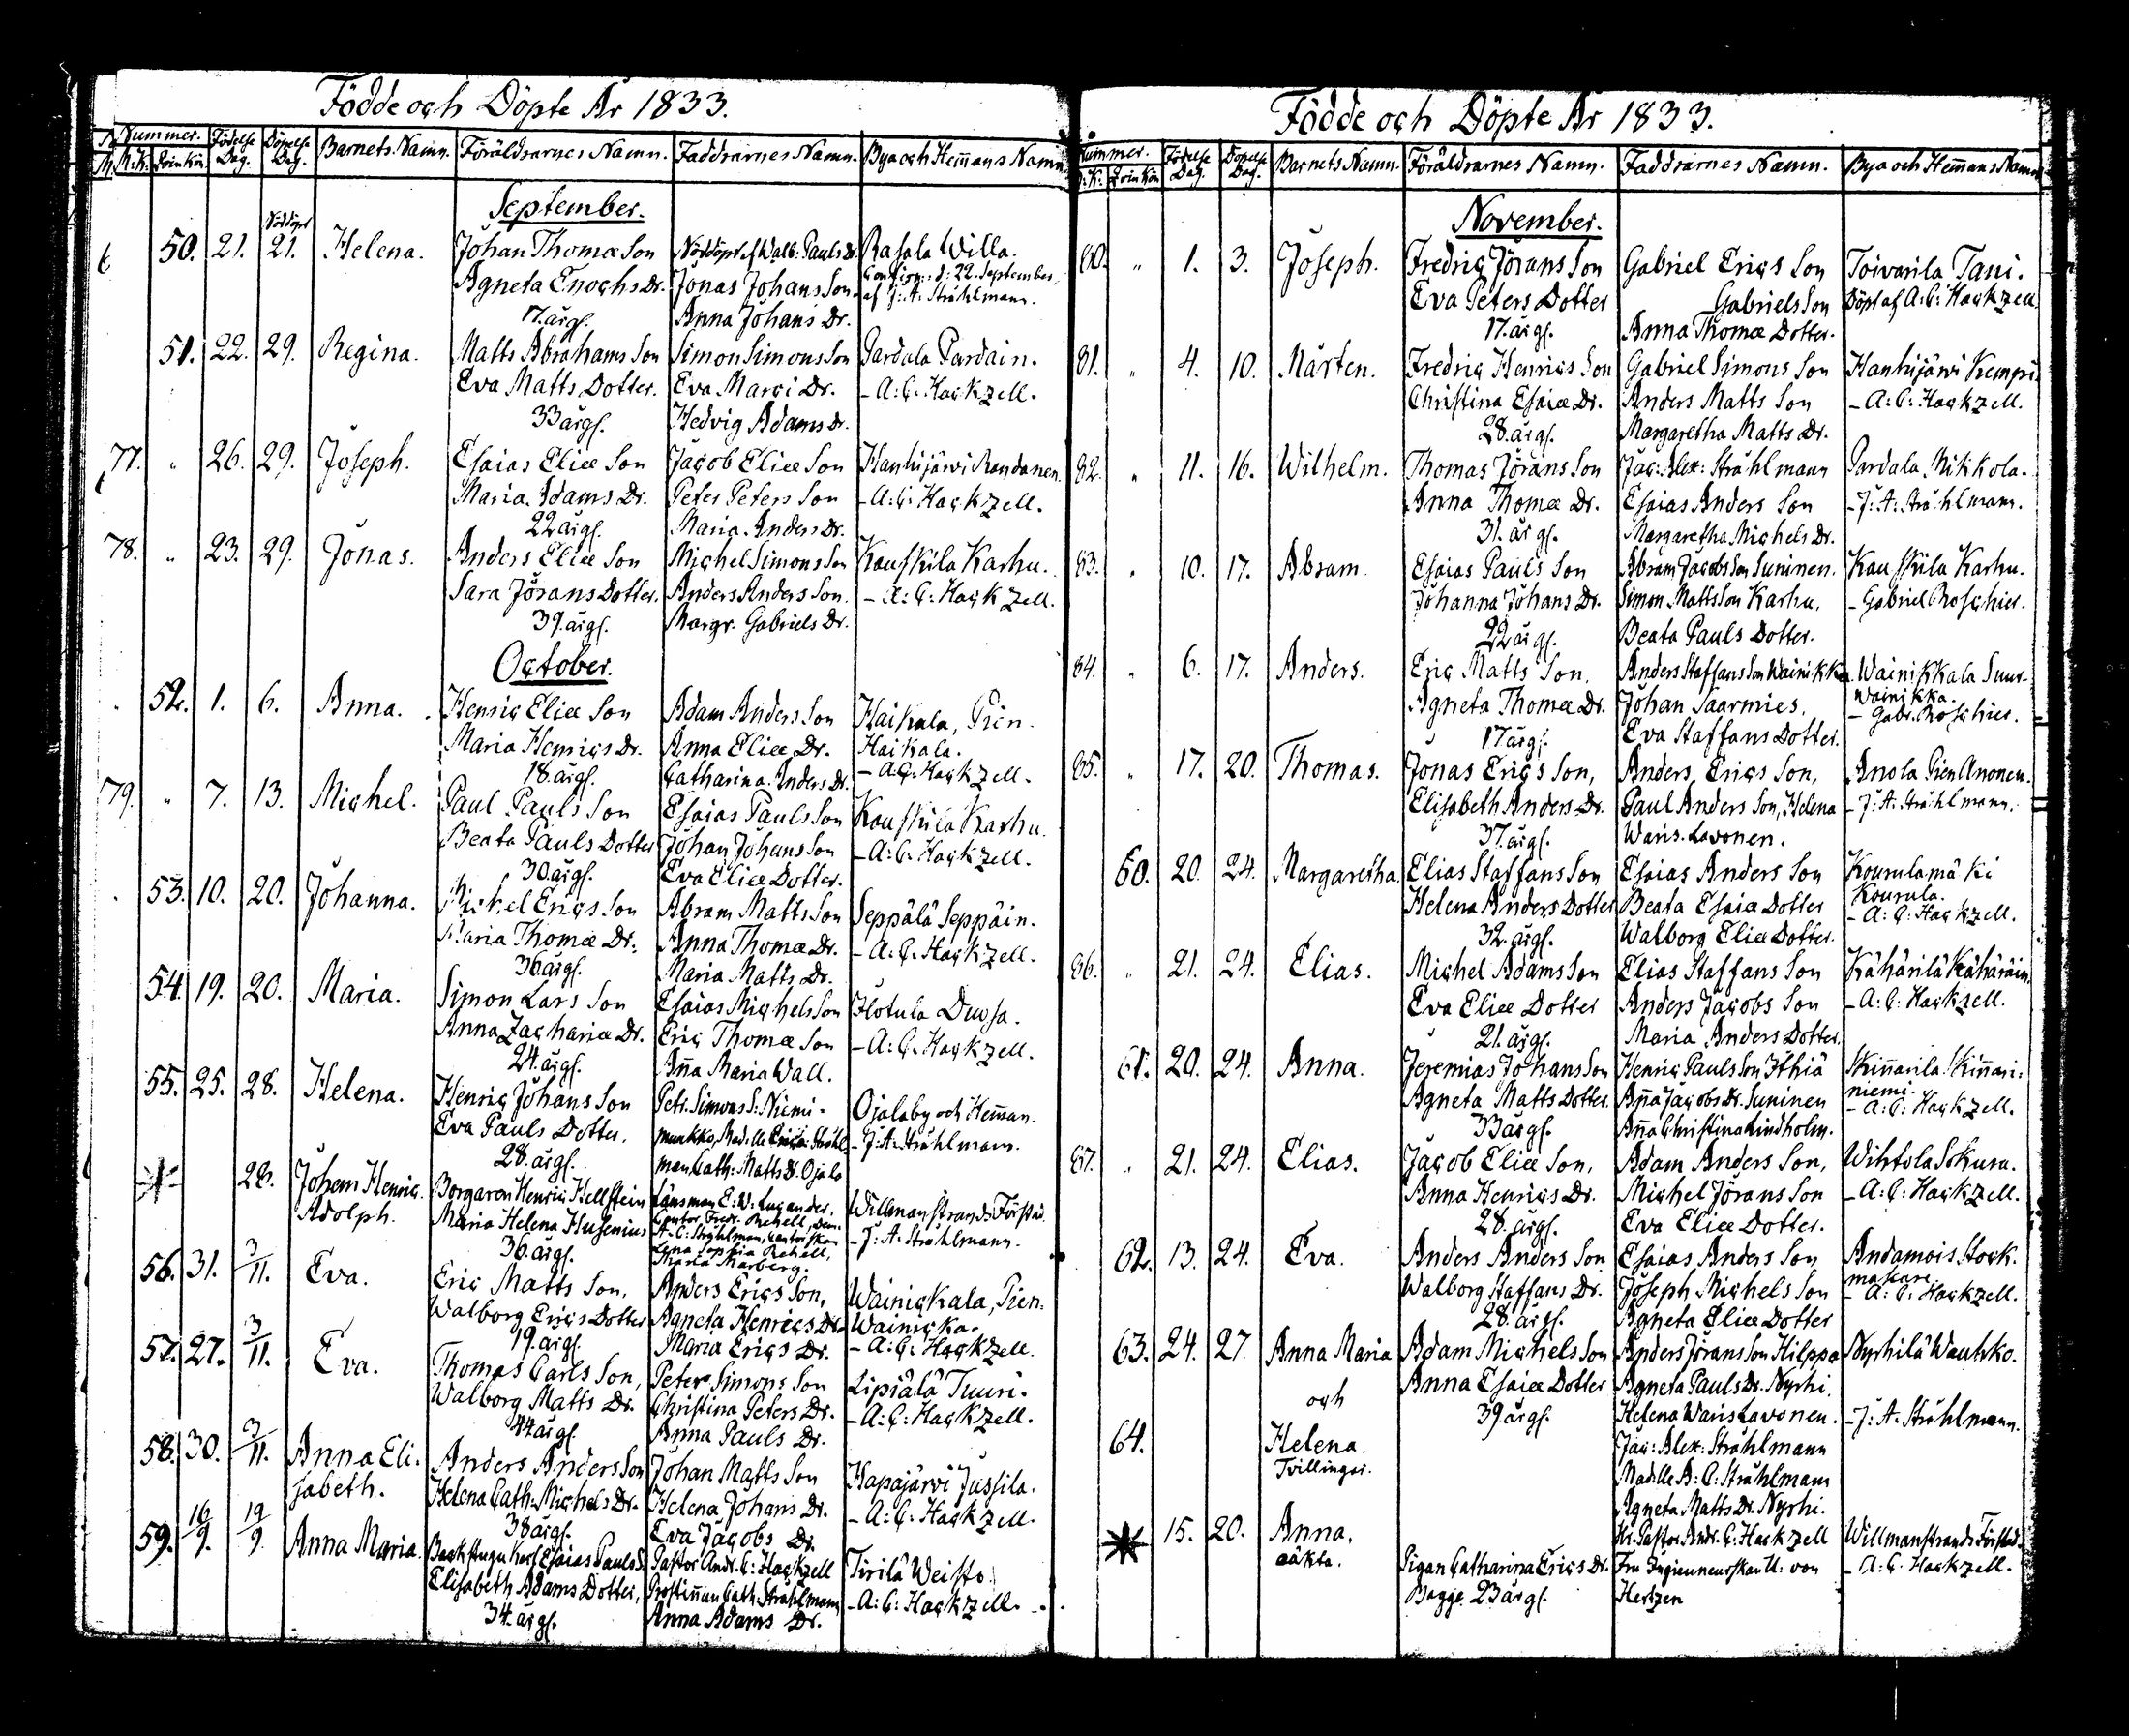 Födde och Döpte År 1833.
Nummer. Födelse Dag. Döpelse Dag. Barnets Namn. Föräldrarnes Namn. Faddrarnes Namn. Bya och Hem̄ans Namn
M.K. Qvinkön
September.
Nöddöpt
50. 21. 21. Helena. Johan Thomæ Son Nöddöpt af Walb. Pauls Dr. Rasala Willa.
Agneta Enochs Dr. Jonas Johans Son. Confirm: d: 22. September,
17. årgl. Anna Johans Dr. af J: A: Stråhlmann.
51. 22. 29. Regina. Matts Abrahams Son Simon Simons Son Pardala Pardain.
Eva Matts Dotter. Eva Marci Dr. – A: C: Hackzell.
33 årgl. Hedvig Adams Dr.
77. " 26. 29. Joseph. Esaias Eliæ Son Jacob Eliæ Son Hanhijärvi Randanen.
Maria Adams Dr. Peter Peters Son – A: C: Hackzell.
22 årgl. Maria Anders Dr.
78. " 23. 29. Jonas. Anders Eliæ Son Michel Simons Son Kauskila Karhu.
Sara Jörans Dotter. Anders Anders Son. – A: C: Hackzell.
39. årgl. Margr. Gabriels Dr.
October.
52. 1. 6. Anna. Henric Eliæ Son Adam Anders Son Haikala, Pien
Maria Henrics Dr. Anna Eliæ Dr. Haikala.
18. årgl. Catharina Anders Dr. – A: C: Hackzell.
79. " 7. 13. Michel. Paul Pauls Son Esaias Pauls Son Kauskila Karhu.
Beata Pauls Dotter Johan Johans Son – A: C: Hackzell.
30. årgl. Eva Eliæ Dotter.
53. 10. 20. Johanna. Michel Erics Son Abram Matts Son Seppälä Seppäin.
Maria Thomæ Dr. Anna Thomæ Dr. – A: C: Hackzell.
36 årgl. Maria Matts Dr.
54. 19. 20. Maria. Simon Lars Son Esaias Michels Son Hotula Duusa.
Anna Zachariæ Dr. Eric Thomæ Son – A: C: Hackzell.
24. årgl. An̄a Maria Wall.
55. 25. 28. Helena. Henric Johans Son Petr. Simons S: Niemi- Ojalaby och Hem̄an.
Eva Pauls Dotter. munkko, Mad:lle Erica Stråhl- – J: A: Stråhlmann.
28. årgl. man Cath: Matts Dr. Ojala
28. Johan Henric Borgaren Henric Hellstein Länsman E: W: Lucander, Willmanstrands Förstad.
Adolph. Maria Helena Husenius Cantor Fredr. Rehell, Dem. – J: A: Stråhlmann.
36. årgl. A: C: Stråhlman, Cantorskan
Lena Sophia Rehell,
Maria Marberg.
56. 31. 3/11. Eva. Eric Matts Son. Anders Erics Son, Wainickala, Pien-
Walborg Erics Dotter Agneta Henrics Dr. Wainicka.
19. årgl. Maria Erics Dr. – A: C: Hackzell.
57. 27. 3/11. Eva. Thomas Carls Son, Peter Simons Son Lipiälä Tuuri.
Walborg Matts Dr. Christina Peters Dr. – A: C: Hackzell.
44 årgl. Anna Pauls Dr.
58. 30. 3/11. Anna Eli- Anders Anders Son Johan Matts Son Hapajärvi Jussila.
sabeth. Helena Cath: Michels Dr. Helena Johans Dr. – A: C: Hackzell.
38 årgl. Eva Jacobs Dr.
59. 16/9. 19/9 Anna Maria. Backstugu Karl Esaias Pauls S. Pastor Andr. C: Hackzell Tirilä Weisto.
Elisabeth Adams Dotter, Prostin̄an Cath: Stråhlmann – A: C: Hackzell.
34. årgl. Anna Adams Dr.
Födde och Döpte År 1833.
Nummer. Födelse Dag. Döpelse Dag. Barnets Namn. Föräldrarnes Namn. Faddrarnes Namn. Bya och Hem̄ans Namn
M.K. Qvinkön
November.
80. " 1. 3. Joseph. Fredric Jörans Son Gabriel Erics Son Toivarila Tani.
Eva Peters Dotter Gabriels Son Döpt af A: C: Hackzell
17. årgl. Anna Thomæ Dotter.
81. " 4. 10. Mårten. Fredric Henrics Son Gabriel Simons Son Hanhijärvi Kemppi.
Christina Esaiæ Dr. Anders Matts Son – A: C: Hackzell.
28. årgl. Margaretha Matts Dr.
82. " 11. 16. Wilhelm. Thomas Jörans Son Jac: Alex: Stråhlmann Pardala Mikkola.
Anna Thomæ Dr. Esaias Anders Son – J: A: Stråhlmann.
31. årgl. Margaretha Michels Dr.
83. " 10. 17. Abram Esaias Pauls Son Abram Jacobs Son Suninen. Kauskila Karhu.
Johanna Johans Dr. Simon Matts Son Karhu. – Gabriel Roschier.
22 årgl. Beata Pauls Dotter.
84. " 6. 17. Anders. Eric Matts Son. Anders Staffans Son Wainikka Wainikkala Suur-
Agneta Thomæ Dr. Johan Saarmies. Wainikka.
17 årgl. Eva Staffans Dotter. – Gabr. Roschier.
85. " 17. 20. Thomas. Jonas Erics Son, Anders Erics Son, Anola Pien Anonen.
Elisabeth Anders Dr. Paul Anders Son, Helena – J: A: Stråhlmann.
37. årgl. Waris. Lavonen.
60. 20. 24. Margaretha Elias Staffans Son Esaias Anders Son Kourulamäki
Helena Anders Dotter Beata Esaiæ Dotter Kourula.
32. årgl. Walborg Eliæ Dotter. – A: C: Hackzell.
86. " 21. 24. Elias. Michel Adams Son Elias Staffans Son Kähärilä Kähäräin
Eva Eliæ Dotter Anders Jacobs Son – A: C: Hackzell.
21. årgl. Maria Anders Dotter.
61. 20. 24. Anna. Jeremias Johans Son Henric Pauls Son Ithiä Skin̄arila Skin̄ari-
Agneta Matts Dotter. An̄a Jacobs Dr. Suninen niemi.
33 årgl. An̄a Christina Lindholm. – A: C: Hackzell.
87. " 21. 24. Elias. Jacob Eliæ Son, Adam Anders Son, Wihtola Sokura.
Anna Henrics Dr. Michel Jörans Son – A: C: Hackzell.
28. årgl. Eva Eliæ Dotter.
62. 13. 24. Eva. Anders Anders Son Esaias Anders Son Andamois Stock-
Walborg Staffans Dr. Joseph Michels Son makare
28. årgl. Agneta Eliæ Dotter – A: C: Hackzell.
63. 24. 27. Anna Maria Adam Michels Son Anders Jörans Son Hilppa Nyrhilä Wauhko.
och Anna Esaiæ Dotter Agneta Pauls Dr. Nyrhi.
39 årgl. Helena Waris Lavonen. – J: A: Stråhlmann.
64. Helena. Jac: Alex: Stråhlmann
Tvillingar. Mad:lle A: C: Stråhlmann
Agneta Matts Dr. Nyrhi.
15. 20. Anna, Hr. Pastor. Andr. C: Hackzell Willmanstrands Förstad.
oäkta. Pigan Catharina Erics Dr. Fru Ingieneurskan U: von – A: C: Hackzell.
Bagge 23 årgl. Hertzen